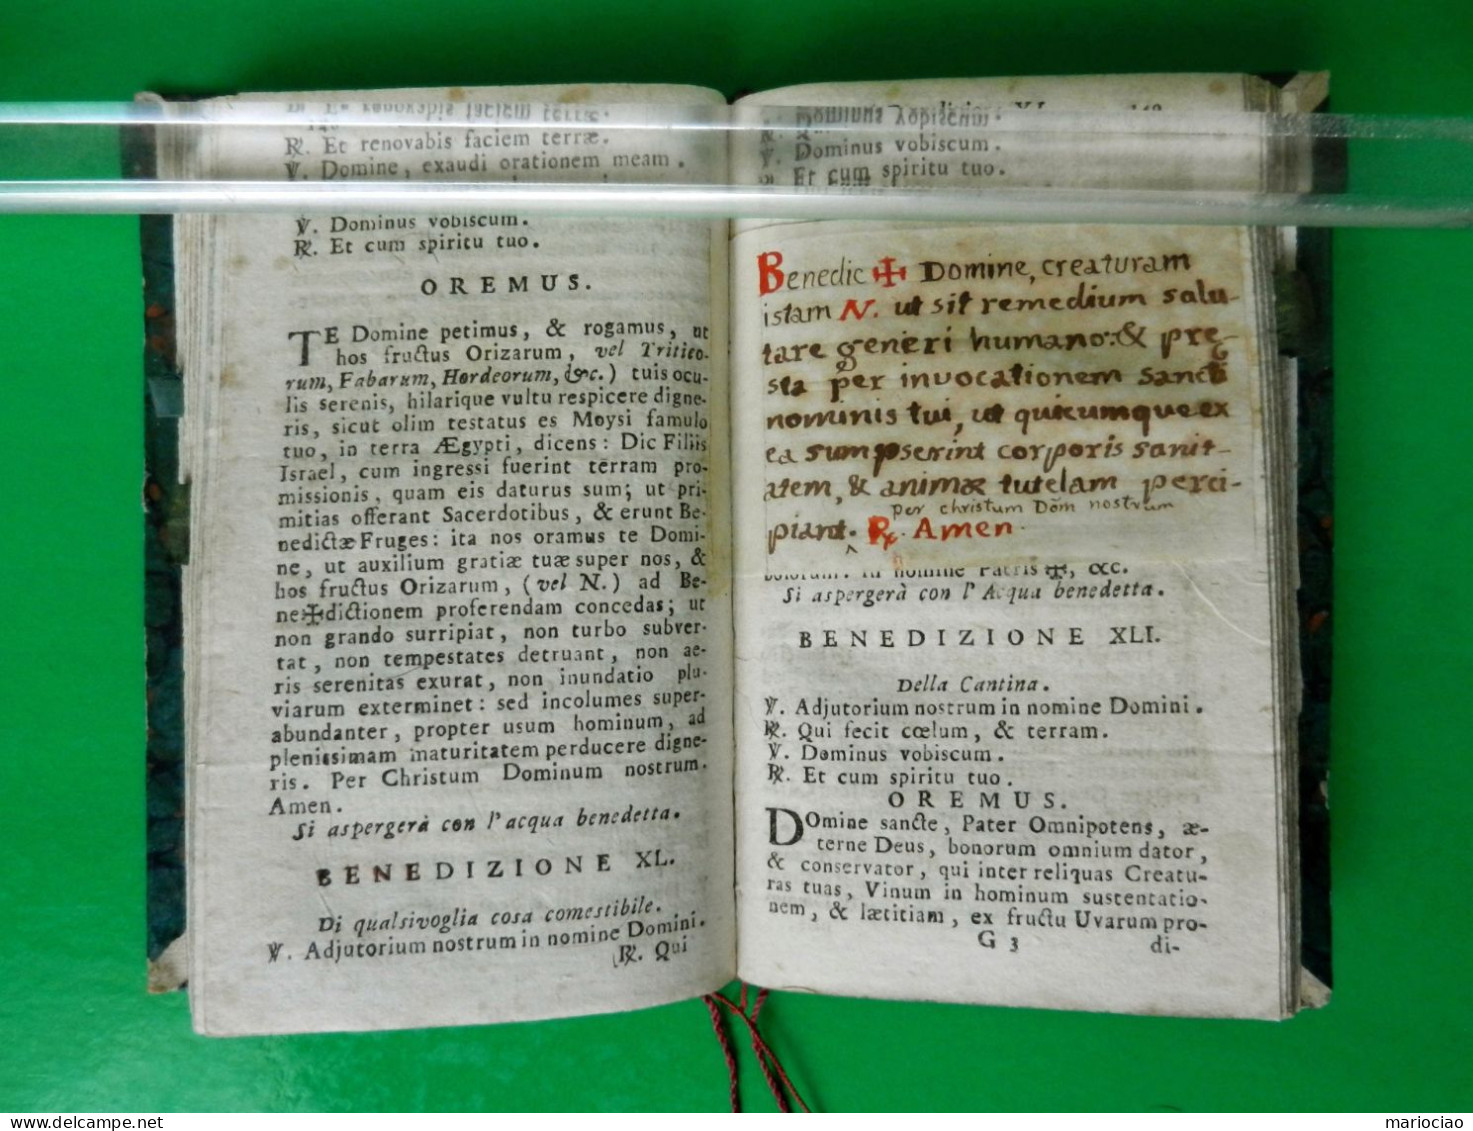 ℟. Et renovabis faciem terræ.
℣. Domine, exaudi orationem meam.
℣. Dominus vobiscum.
℟. Et cum spiritu tuo.
OREMUS.
TE Domine petimus, & rogamus, ut
hos fructus Orizarum, vel Tritico-
rum, Fabarum, Hordeorum, &c.) tuis ocu-
lis serenis, hilarique vultu respicere digne-
ris, sicut olim testatus es Moysi famulo
tuo, in terra Ægypti, dicens: Dic Filiis
Israel, cum ingressi fuerint terram pro-
missionis, quam eis daturus sum; ut pri-
mitias offerant Sacerdotibus, & erunt Be-
nedictæ Fruges: ita nos oramus te Domi-
ne, ut auxilium gratiæ tuæ super nos, &
hos fructus Orizarum, (vel N.) ad Be-
ne✠dictionem proferendam concedas; ut
non grando surripiat, non turbo subver-
tat, non tempestates detruant, non ae-
ris serenitas exurat, non inundatio plu-
viarum exterminet: sed incolumes super-
abundanter, propter usum hominum, ad
plenissimam maturitatem perducere digne-
ris. Per Christum Dominum nostrum.
Amen.
Si aspergerà con l'acqua benedetta.
BENEDIZIONE XL.
Di qualsivoglia cosa comestibile.
℣. Adjutorium nostrum in nomine Domini.
℟. Qui
℣. Dominus vobiscum.
℟. Et cum spiritu tuo.
Benedic ✠ Domine, creaturam
istam N. ut sit remedium salu-
tare generi humano: & pre-
sta per invocationem sancti
nominis tui, ut quicumque ex
ea sumpserint corporis sanit-
atem, & animæ tutelam perci-
per christum Dom nostrum
piant. ℟. Amen.
In nomine Patris ✠, &c.
Si aspergerà con l'Acqua benedetta.
BENEDIZIONE XLI.
Della Cantina.
℣. Adjutorium nostrum in nomine Domini.
℟. Qui fecit cœlum, & terram.
℣. Dominus vobiscum.
℟. Et cum spiritu tuo.
OREMUS.
DOmine sancte, Pater Omnipotens, æ-
terne Deus, bonorum omnium dator,
& conservator, qui inter reliquas Creatu-
ras tuas, Vinum in hominum sustentatio-
nem, & lætitiam, ex fructu Uvarum pro-
G 3 di-
mariociao